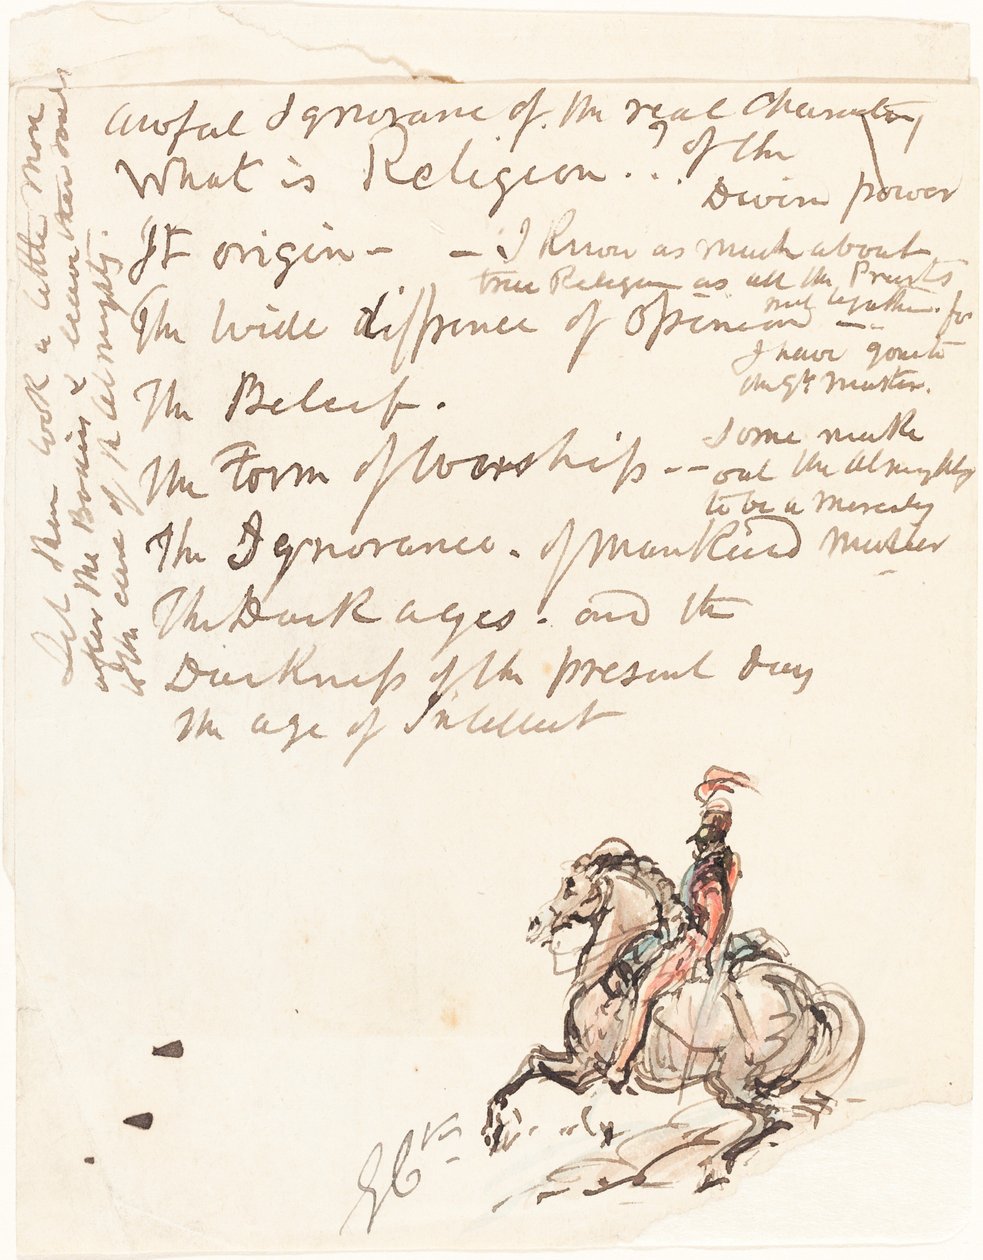 awful Ignorance of the real Character,
of the
Divine power
What is Religion . . ?
It origin –
– I know as much about
true Religion as all the Priests
put together. for
I have gone to
the Gt Master.
The wide diffrence of Opinion –
The Beleif.
The Form of Worship - -
Some make
out the Almighty
to be a Mercely
Master
The Ignorance . of Mankind
The Dark ages . and the
Darkness of the present day
The age of Intellect
Let them look a little more
after the Bodies & leave the
to the care of the Almighty.
GCk